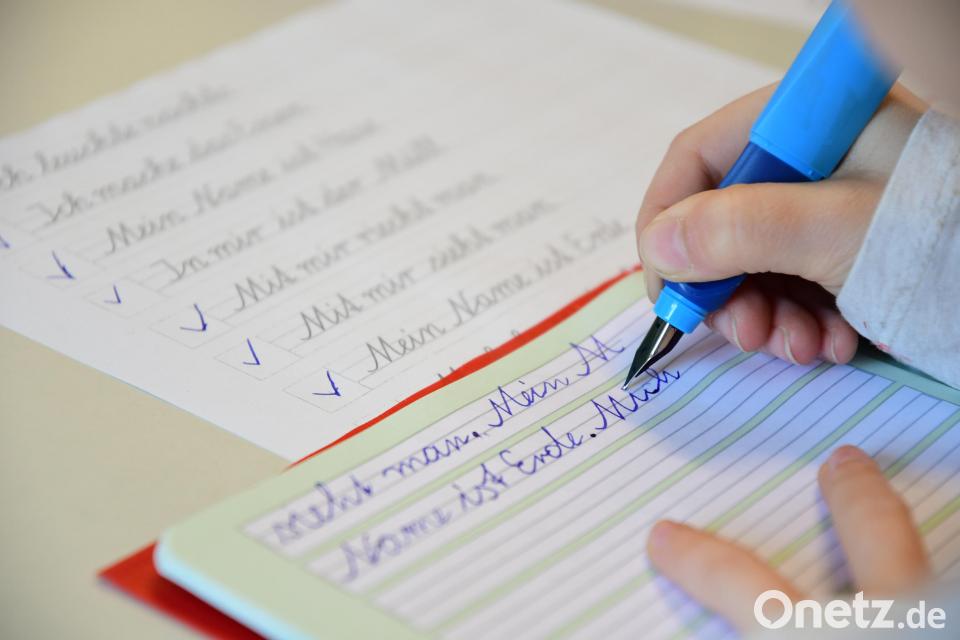 ich leuchte nicht
Ich mache das
Mein Name ist
In mir ist der Müll
Mit mir riecht man
Mit mir sieht man
Mein Name ist Erde
sieht man. Mein N
Name ist Erde. Mich
Onetz.de